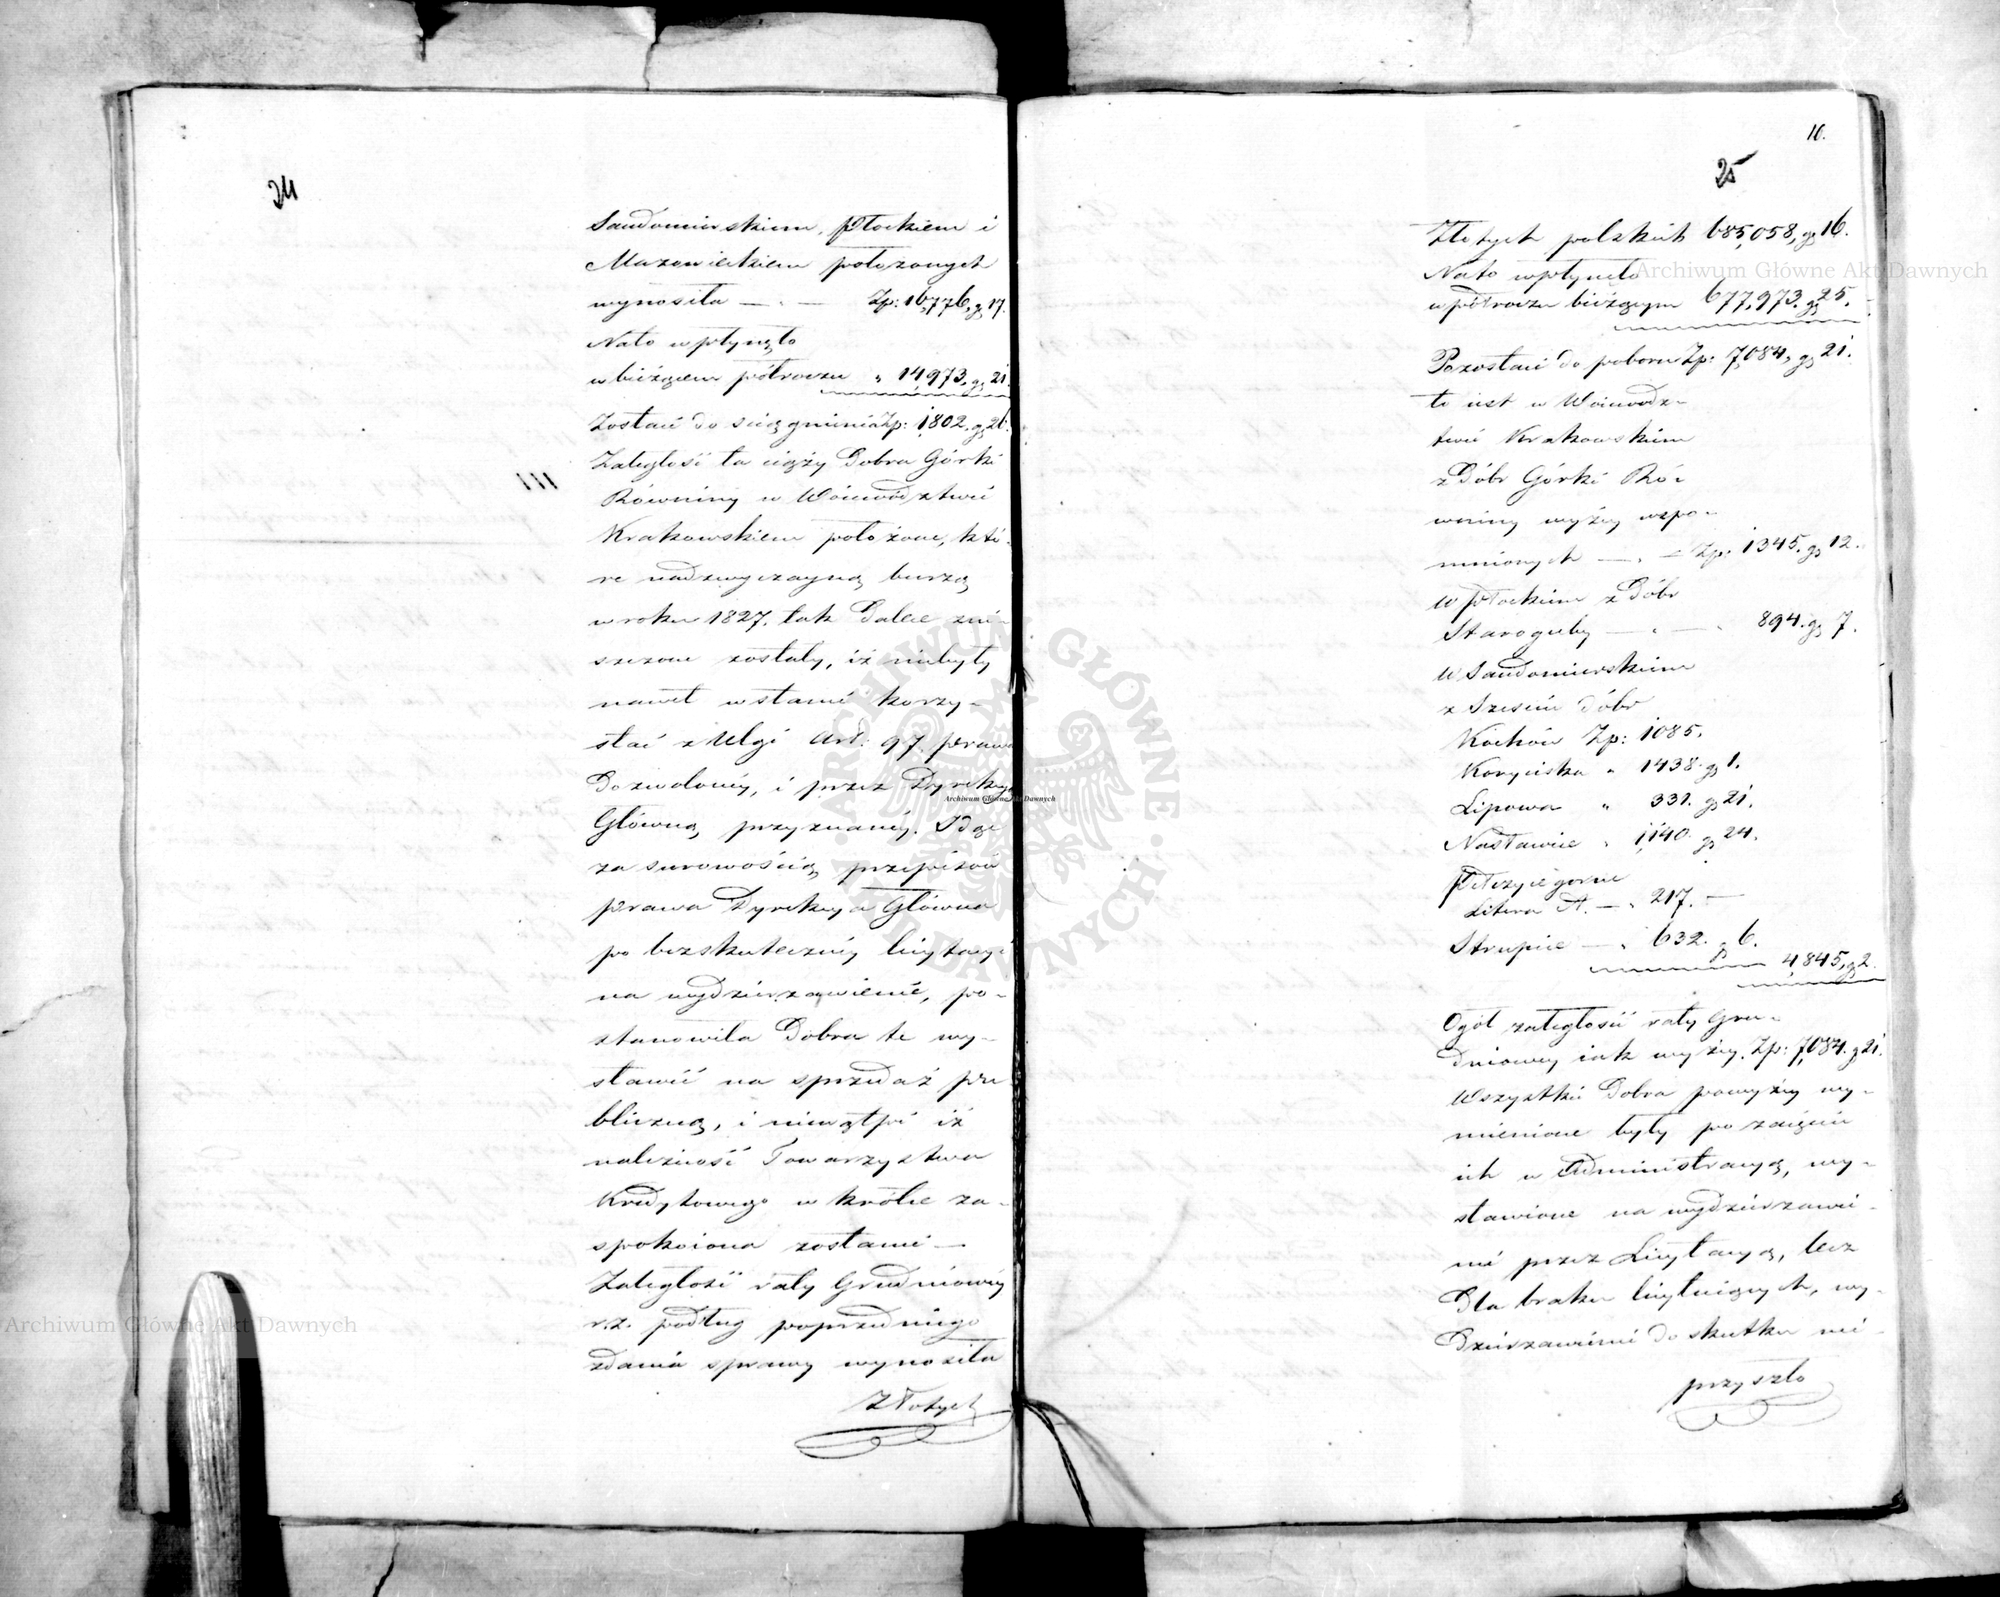 24
Sandomierskiem, Płockiem i
Mazowieckiem położonych
wynosiła — „ — Zp: 16,776, g 17.
Nato wpłynęło
w bieżącem półroczu „ 14,973. g 21.
Zostaie do sciągnieniaZp: 1,802. g 26.
Zaległość ta ciąży Dobra Górki
Równiny w Woiewództwie
Krakowskiem położone, któ-
re nadzwyczayną burzą
w roku 1827. tak dalece zni-
szczone zostały, iż niebyły
nawet w stanie korzy-
stać z Ulgi Art: 97. prawa
Dozwoloney, i przez Dyrekcyą
Główną przyznaney. Idąc
za surowością przepisów
prawa Dyrekcya Główna
po bezskuteczney licytacyi
na wydzierzawienie, po-
stanowiła Dobra te wy-
stawić na sprzedaż pu
bliczną, i niewątpi iż
należność Towarzystwa
Kredytowego w krótce za-
spokoiona zostanie —
Zaległość raty Grudniowey
r. z. podług poprzedniego
zdania sprawy wynosiła
Złotych
10.
25
Złotych polskich 685,058, g 16.
Nato wpłynęło
w półroczu bieżącym 677,973. g 25.
Pozostaie do poboru Zp: 7,084, g 21.
to iest w Woiewódz-
twie Krakowskiem
z Dóbr Górki Ró-
wniny wyżey wspo-
mnionych — „ — Zp: 1345. g 12.
W Płockiem z Dóbr
Staroguby — „ — „ 894. g 7.
W Sandomierskiem
z Sześciu dóbr
Kochów Zp: 1085.
Koryciska „ 1438. g 1.
Lipowa „ 331. g 21.
Nastawice „ 1,140. g 24.
Pełczyce gorne
Litera A. — „ 217. —
Strupice — „ 632. „ 6.
4,845, g 2.
Ogół zaległości raty Gru-
dniowey iak wyżey. Zp: 7,084. g 21.
Wszystkie Dobra powyżey wy-
mienione były po zaięciu
ich w Administracyą, wy-
stawione na wydzierzawie-
nie przez Licytacyą, lecz
Dla braku licytuiących, wy-
Dzierzawienie do skutku nie-
przyszło
Archiwum Główne Akt Dawnych
Archiwum Główne Akt Dawnych
Archiwum Główne Akt Dawnych
ARCHIWUM GŁÓWNE AKT DAWNYCH